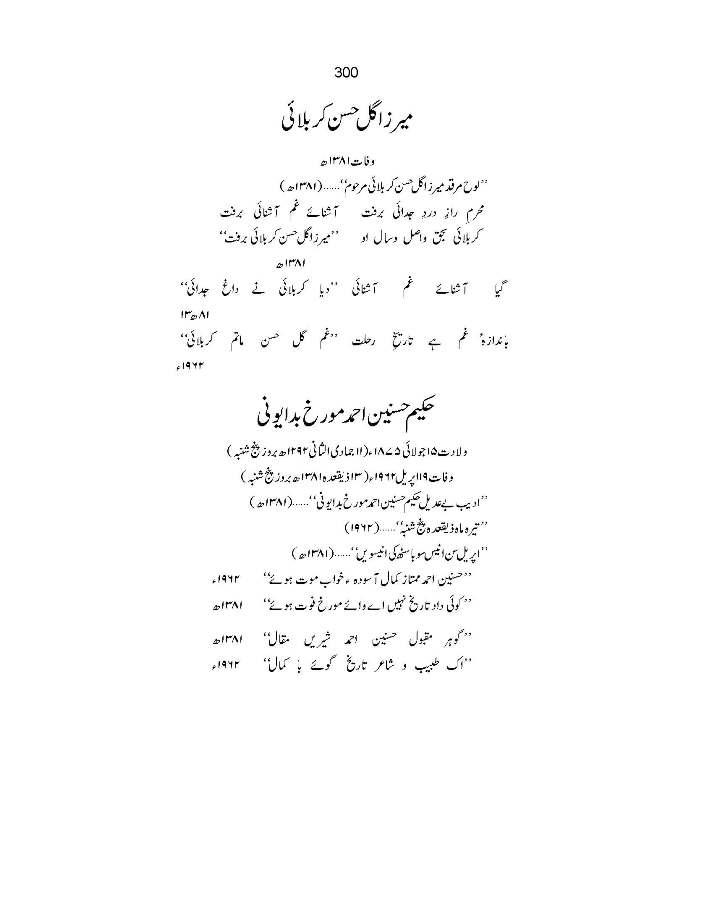 300
میرزا گل حسن کربلائی
وفات ۱۳۸۱ھ
’’لوح مرقد میرزا گل حسن کربلائی مرحوم‘‘......(۱۳۸۱ھ)
محرمِ رازِ دردِ جدائی برفت آشنائے غم آشنائی برفت
کربلائی بحق واصل وسال او ’’میرزا گل حسن کربلائی برفت‘‘
۱۳۸۱ھ
گیا آشنائے غم آشنائی ’’دیا کربلائی نے داغ جدائی‘‘
۸۱ھ۱۳
باندازۂ غم ہے تاریخِ رحلت ’’غم گل حسن ماتم کربلائی‘‘
۱۹۶۲ء
حکیم حسنین احمد مورخ بدایونی
ولادت ۱۵ جولائی ۱۸۷۵ء (۱۱ جمادی الثانی ۱۲۹۲ھ بروز پنج شنبہ)
وفات ۱۹ اپریل ۱۹۶۲ء (۱۳ ذیقعدہ ۱۳۸۱ھ بروز پنج شنبہ)
’’ادیب بے عدیل حکیم حسنین احمد مورخ بدایونی‘‘......(۱۳۸۱ھ)
’’تیرہ ماہ ذیقعدہ پنج شنبہ‘‘......(۱۹۶۲)
’’اپریل سن انیس سو باسٹھ کی انیسویں‘‘......(۱۳۸۱ھ)
’’حسنین احمد ممتاز کمال آسودہ ء خواب موت ہوئے‘‘ ۱۹۶۲ء
’’کوئی داد تاریخ نہیں اے وائے مورخ فوت ہوئے‘‘ ۱۳۸۱ھ
’’گوہر مقبول حسنین احمد شیریں مقال‘‘ ۱۳۸۱ھ
’’اک طبیب و شاعر تاریخ گوئے با کمال‘‘ ۱۹۶۲ء